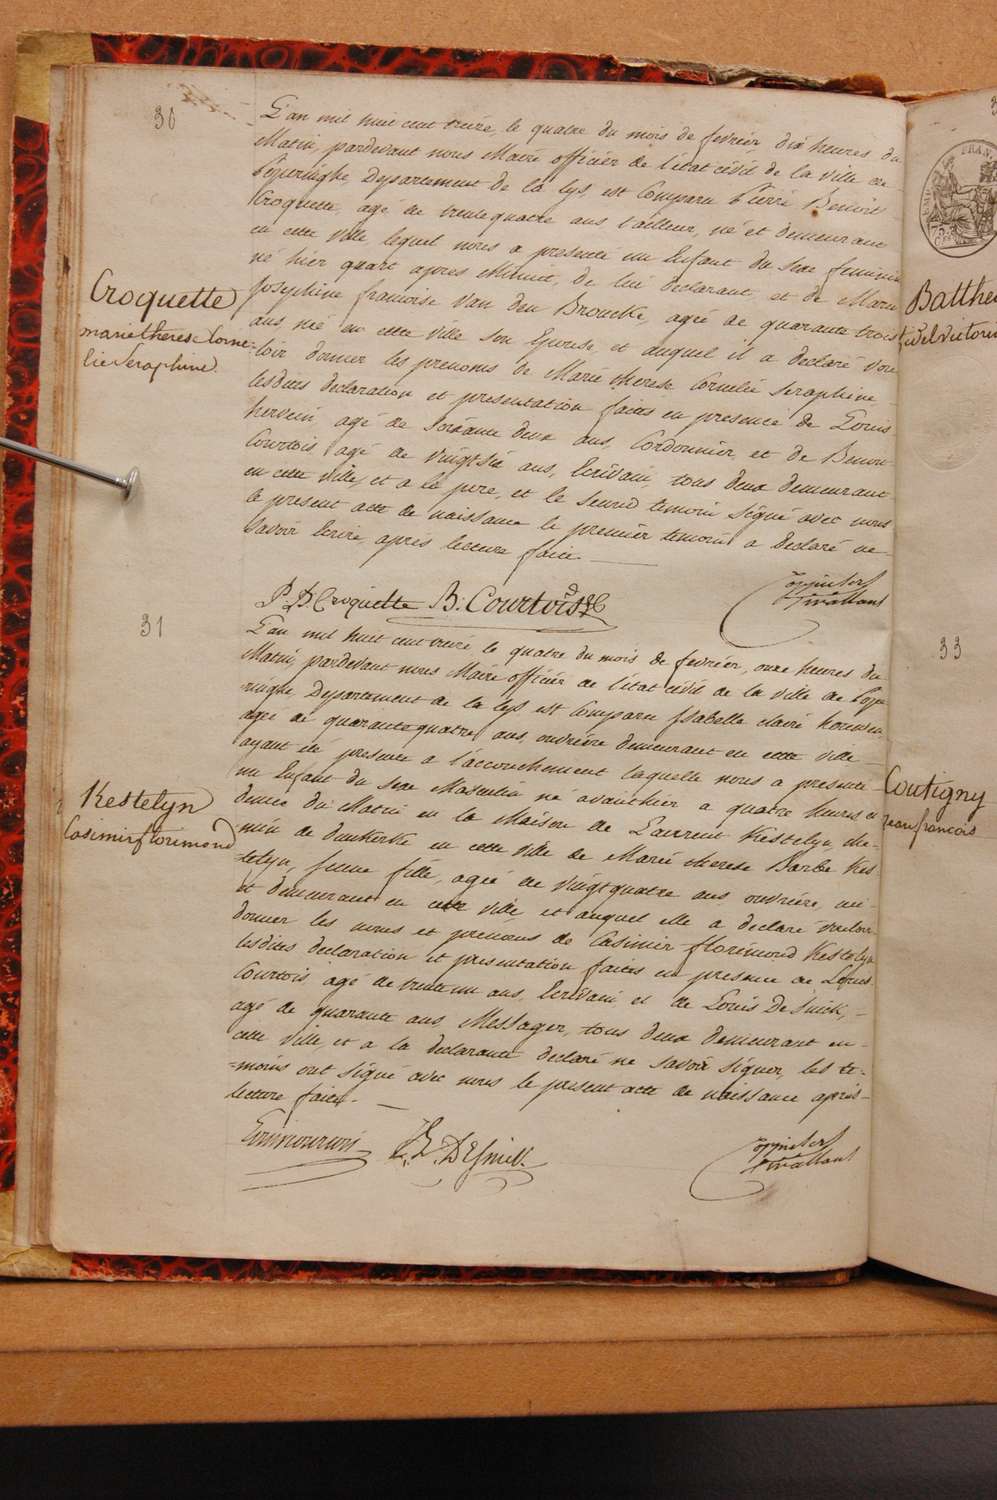 30
L'an mil huit cent treize, le quatre du mois de fevrier dix heures du
Matin, pardevant nous Maire officier de l'état civil de la ville de
Poperinghe, Departement de la Lys, est Comparu Pierre Benoit
Croquette, agé de trente quatre ans tailleur, né et demeurant
en cette ville lequel nous a presenté un Enfant du sexe feminin
né hier quart apres Minuit, de lui declarant et de Marie
Josephine francoise Van den Broucke, agée de quarante trois
ans née en cette ville son Epouse, et auquel il a declaré vou
loir donner les prenoms de Marie therese Cornelie Seraphine
lesdites declaration et presentation faites en presence de Louis
hervein, agé de soixante deux ans, Cordonnier, et de Benoit
Courtois, agé de vingt six ans, Ecrivain, tous deux demeurant
en cette ville, et a le pere, et le second temoin signé avec nous
le present acte de naissance le premier temoin a declaré ne
savoir Ecrire, après lecture faite
Croquette
marie therese Corne-
lie Seraphine.
P. B. Croquette B. Courtois
31
L'an mil huit cent treize le quatre du mois de fevrier, onze heures du
Matin, pardevant nous Maire officier de l'état civil de la ville de Pope
ringhe Departement de la Lys est Comparu Isabelle claire
agée de quarante quatre ans, ouvrière demeurant en cette ville
ayant été presente a l'accouchement laquelle nous a presenté
un Enfant du sexe Masculin né avant hier a quatre heures et
demie du Matin en la Maison de Laurent Kestelyn, che-
min de dunkerke en cette ville de Marie therese Barbe Kes
=telyn, jeune fille, agée de vingt quatre ans ouvrière, née
et demeurant en cette ville et auquel elle a declaré vouloir
donner les noms et prenoms de Casimir florimond Kestelyn
lesdites declaration et presentation faites en presence de Louis
Courtois, agé de trente un ans, Ecrivain et de Louis
agé de quarante ans, Messager, tous deux demeurant en
cette ville, et a la declarante declaré ne savoir signer, les te-
=moins ont signé avec nous le present acte de naissance après
lecture faite.
Kestelyn
Casimir florimond
Batthe
33
Coutigny
jean francois